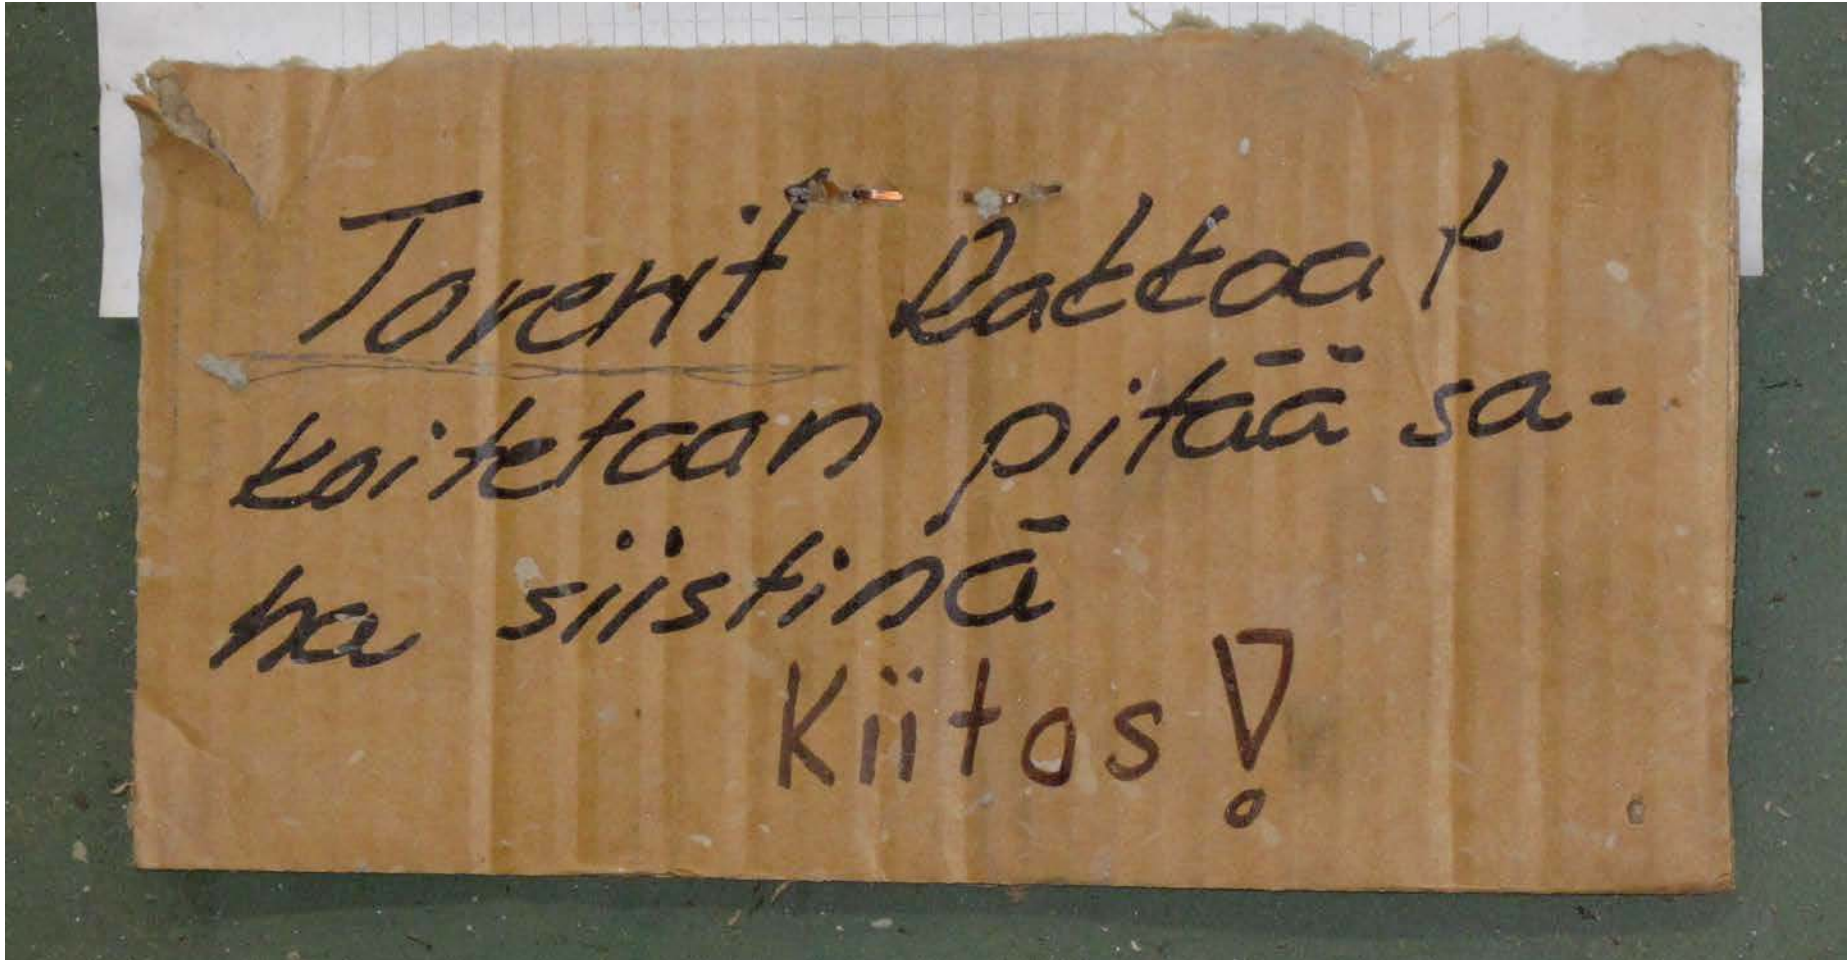 Toverit Rakkaat
koitetaan pitää sa-
ha siistinä
Kiitos!